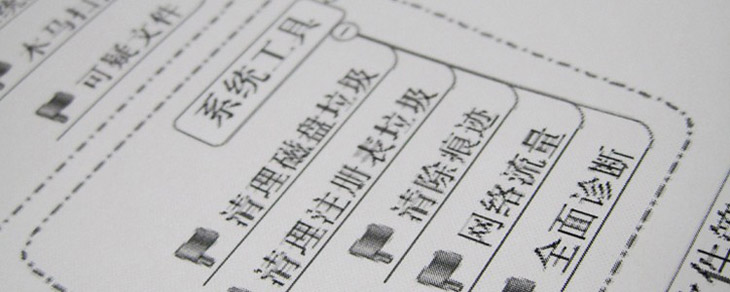 木马扫
可疑文件
系统工具
清理磁盘垃圾
清理注册表垃圾
清除痕迹
网络流量
全面诊断